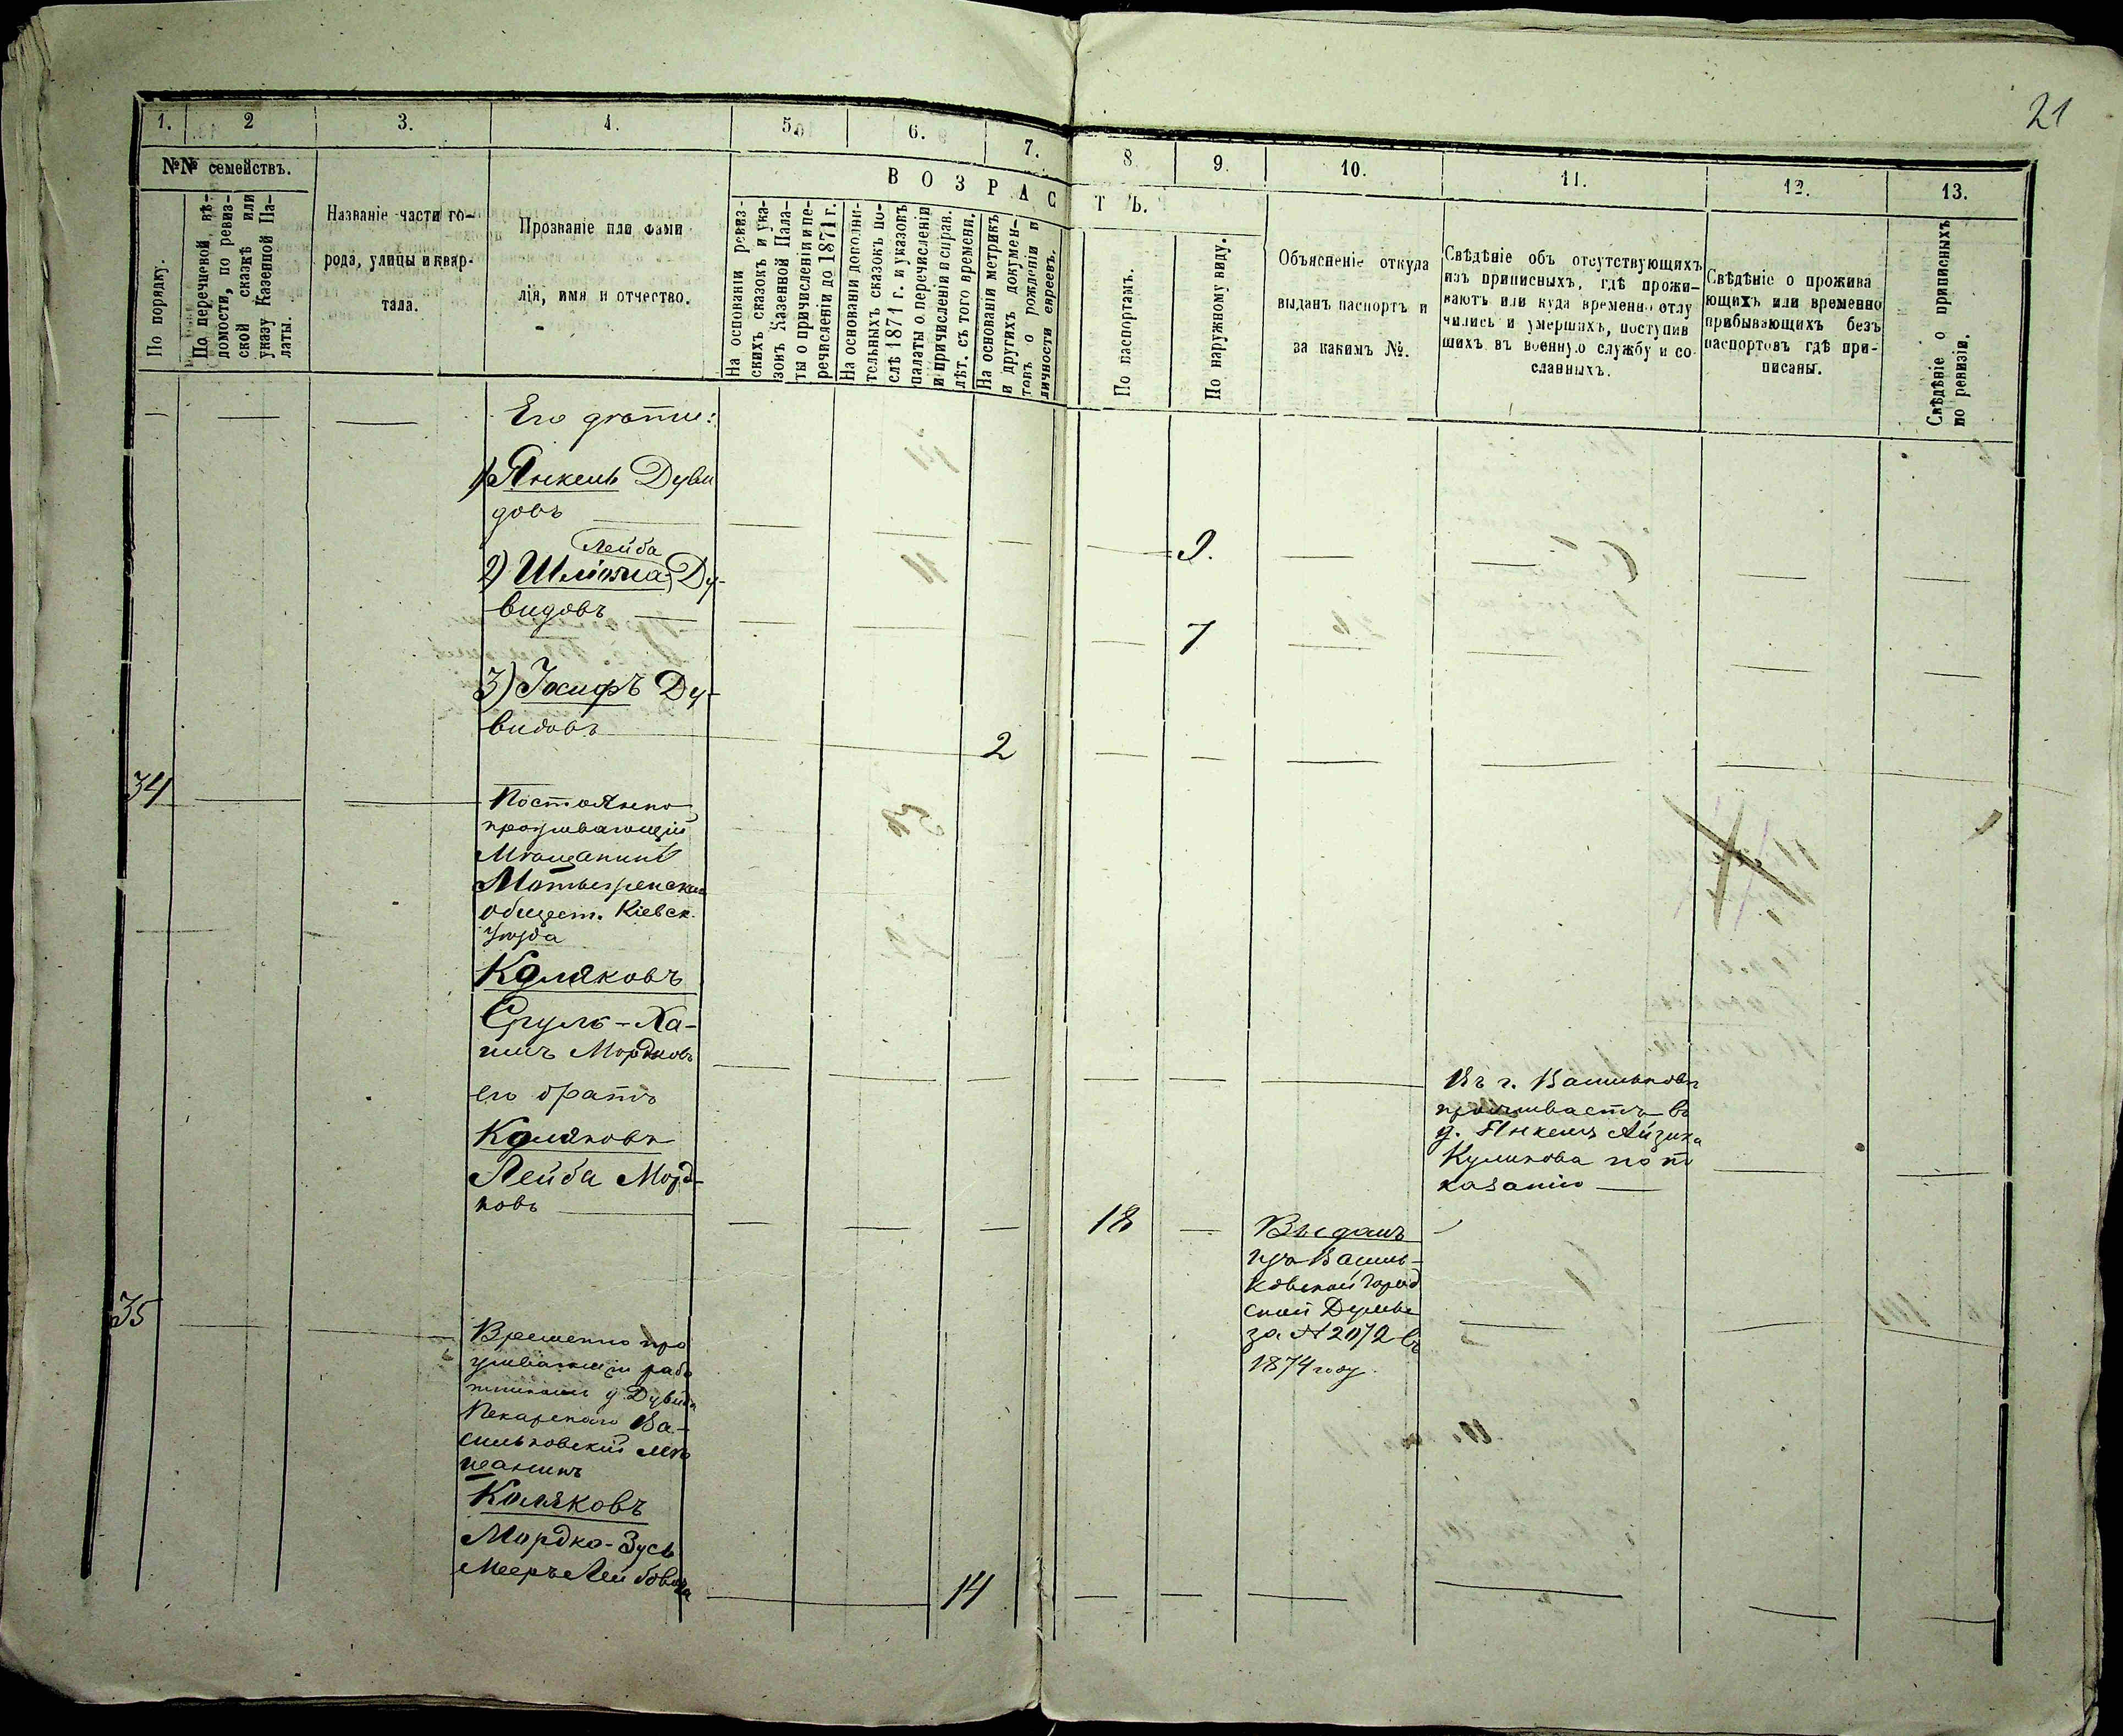 21
1. 2 3. 4. 5. 6. 7. 8 9. 10. 11. 12. 13.
№№ семействъ.
В О З Р А С Т Ъ.
По порядку.
По перечневой вѣ-
домости, по ревиз-
ской сказкѣ или
указу Казенной Па-
латы.
Названіе части го-
рода, улицы и квар-
тала.
Прозваніе или фами
лія, имя и отчество.
На основаніи ревиз-
скихъ сказокъ и ука-
зовъ Казенной Пала-
ты о причисленіи и пе-
речисленіи до 1871 г.
На основаніи дополни-
тельныхъ сказокъ по-
слѣ 1871 г. и указовъ
палаты о перечисленіи
и причисленіи и справ.
лѣт. съ того времени.
На основаніи метрикъ
и другихъ докумен-
товъ о рожденіи и
личности евреевъ.
По паспортамъ.
По наружному виду.
Объясненіе откуда
выданъ паспортъ и
за какимъ №.
Свѣдѣніе объ отсутствующихъ
изъ приписныхъ, гдѣ прожи-
ваютъ или куда временно отлу
чились и умершихъ, поступив
шихъ въ военную службу и со
сланныхъ.
Свѣдѣніе о прожива
ющихъ или временно
прибывающихъ безъ
паспортовъ гдѣ при-
писаны.
Свѣдѣніе о приписныхъ
по ревизіи.
Его дѣти:
1) Янкель Дуви
довъ
9.
Лейба
2) Шліома Ду-
видовъ
7
3) Іосифъ Ду-
видовъ
2
34
Постоянно
проживающій
Мѣщанинъ
общест. Кіевск.
уѣзда
Коляковъ
Сруль-Ха-
имъ Мордковъ
его братъ
Коляковъ
Лейба Морд-
ковъ
18
Въ г. Васильковѣ
проживаетъ въ
д. Янкеля Айзика
Куликова по по
казанію
Выданъ
изъ Василь-
ковской Город
ской Думы
за № 2072 въ
1874 году
35
Временно про
живающій рабо
тникомъ у Дувида
Пекарского Ва-
сильковскій мѣ
щанинъ
Коляковъ
Мордко-Зусь
Мееръ Лейбовичъ
14